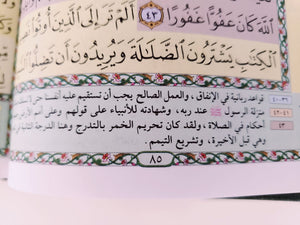 ٱللَّهَ كَانَ عَفُوًّا غَفُورًا ٤٣ أَلَمْ تَرَ إِلَى ٱلَّذِينَ أُوتُوا۟
ٱلْكِتَٰبِ يَشْتَرُونَ ٱلضَّلَٰلَةَ وَيُرِيدُونَ أَن تَضِلُّوا۟
٣٦-٤٠ قواعد ربانية في الإنفاق، والعمل الصالح يجب أن تستقيم عليه
٤١-٤٢ منزلة الرسول ﷺ عند ربه، وشهادته للأنبياء على قولهم وعلى
٤٣ أحكام في الصلاة، ولقد كان تحريم الخمر بالتدرج وهنا الدرجة الثانية
وهي قبل الأخيرة، وتشريع التيمم.
٨٥